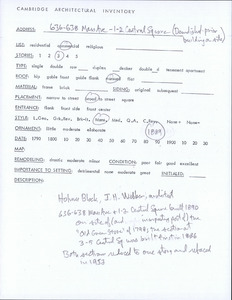 CAMBRIDGE ARCHITECTURAL INVENTORY
ADDRESS: 636-638 Mass Ave - 1-2 Central Square (Demolished - prior
building on site)
USE: residential commercial religious
STORIES: 1 2 3 4 5
TYPE: single double row duplex double d tenement apartment
ROOF: hip gable front gable flank mansard flat
MATERIAL: frame brick SIDING: original subsequent
PLACEMENT: narrow to street broad to street square
ENTRANCE: flank front side front center
ORNAMENT: little moderate elaborate 1889
DATE: 1790 1800 10 20 30 40 50 60 70 80 90 1900 10 20 30
MAP:
REMODELLING: drastic moderate minor CONDITION: poor fair good excellent
IMPORTANCE TO SETTING: detrimental none moderate great INITIALED:
DESCRIPTION:
Holmes Block, J.H. architect
636-638 Mass Ave - 1-2 Central Square built 1890
on site of (and incorporating part of) the
"Old Green Store" of 1798; the section at
3-5 Central Sq was built first in 1886
Both sections reduced to one story and refaced
in 1953